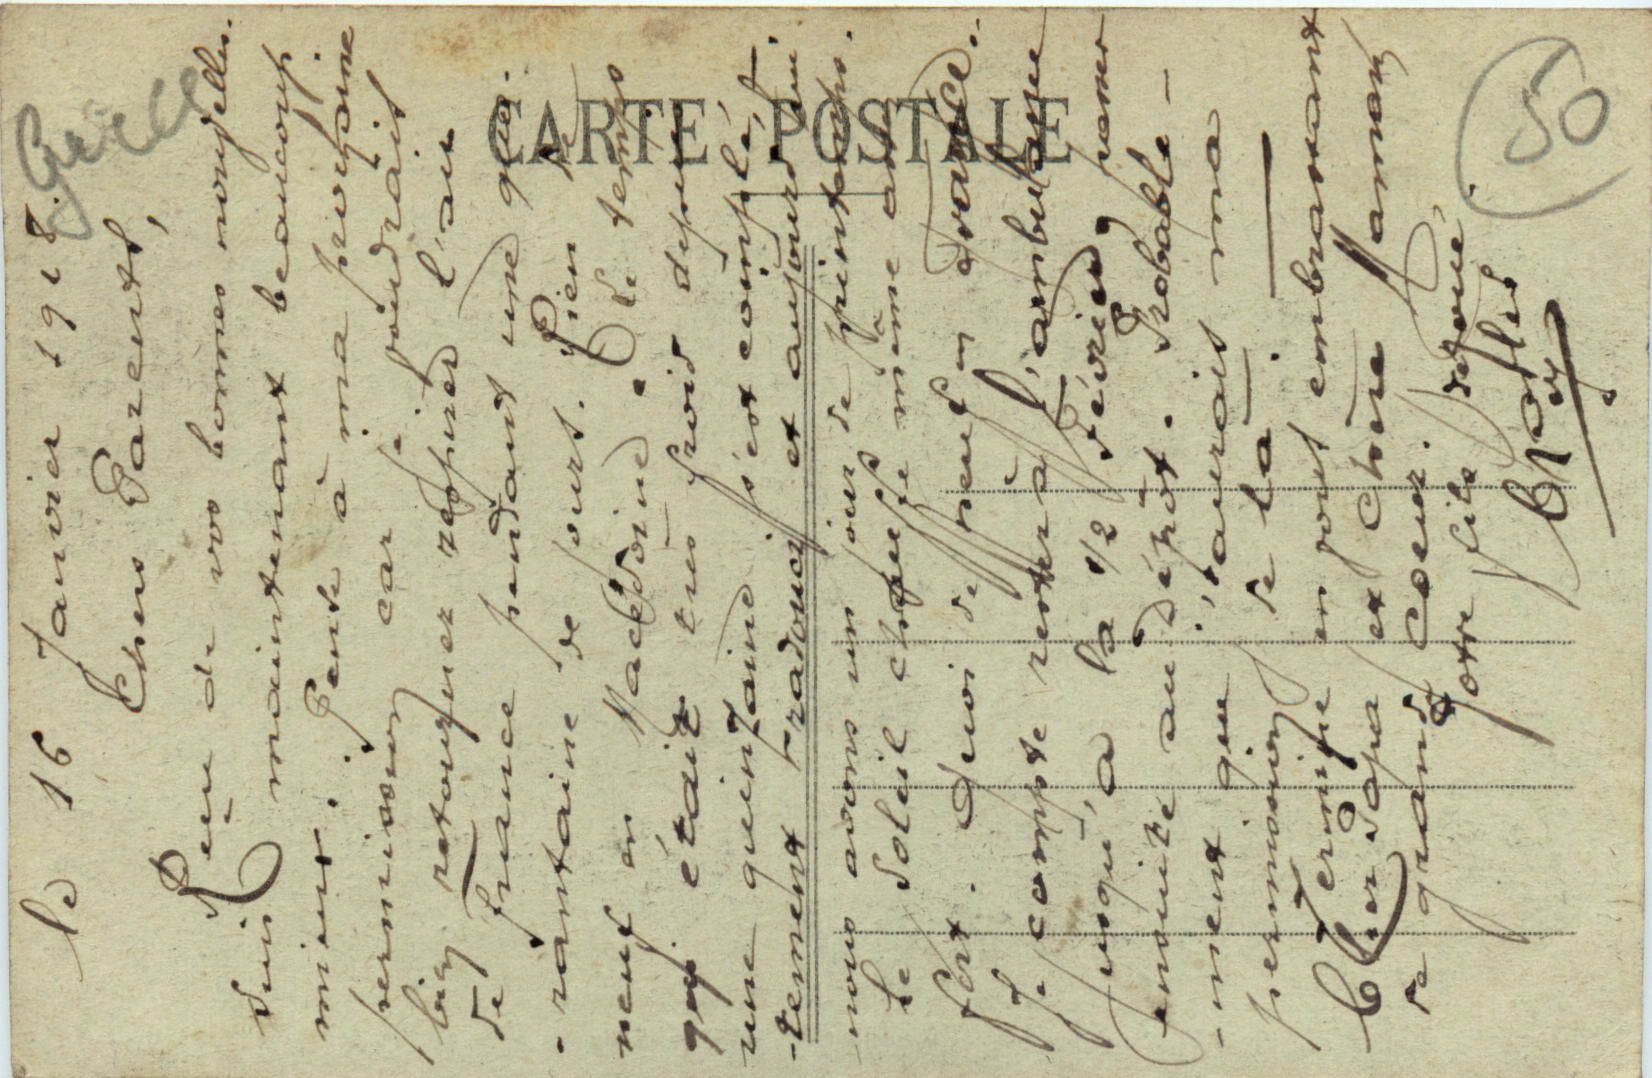 CARTE POSTALE
Grèce
50
le 16 Janvier 1918.
Chers Parents,
Reçu de vos bonnes nouvelles.
suis maintenant beaucoup
mieux. Pense à ma prochaine
permission car je voudrais
bien retourner respirer l'air
de France pendant une qua-
-rantaine de jours. Rien de
neuf en Macédoine. Le temps
qui était très froid depuis
une quinzaine s'est complé-
-tement radouci et aujourd'hui
nous avons un jour de printemps.
Le soleil chauffe même assez
fort. Quoi de neuf en France.
Je compte rester à l'ambulance
jusqu'à la 1/2 Février, passer
ensuite au dépôt. Probable-
-ment que j'aurais ma
permission de là.
Termine en vous embrassant
Cher Papa et Chère Maman
de grand Coeur.
Votre fils dévoué,
Charles